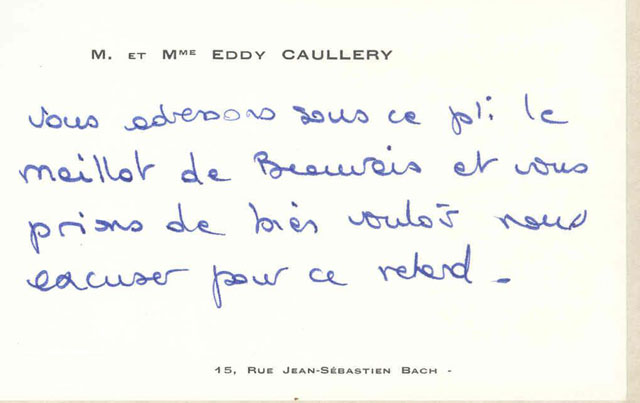 M. ET MME EDDY CAULLERY
vous adressons sous ce pli le
maillot de Beauvais et vous
prions de bien vouloir nous
excuser pour ce retard -
15, RUE JEAN-SÉBASTIEN BACH -